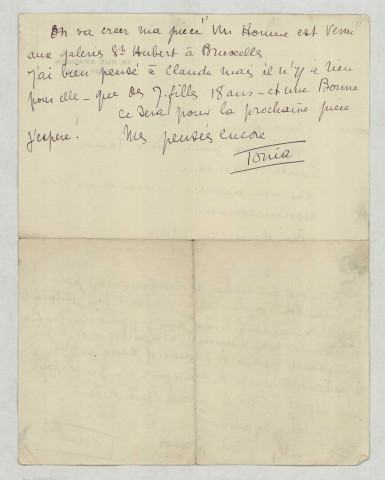 On va créer ma pièce "Un Homme est Venu"
aux galeries St Hubert à Bruxelles
j'ai bien pensé à Claude mais il n'y a rien
pour elle - que des J. filles 18 ans - et une Bonne
ce sera pour la prochaine piece
j'espere! Mes pensées encore
Tonia